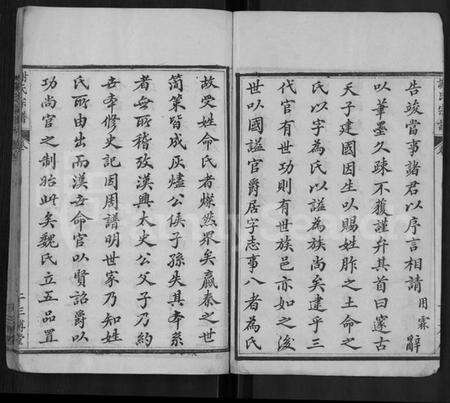 告竣當事諸君以序言相請用霖辭
以華墨久疎不獲謹弁其首曰邃古
天子建國因生以賜姓胙之土命之
氏以字為氏以謚為族尚矣建乎三
代官有世功則有世族邑亦如之後
世以國謚官爵居字志事八者為氏
故受姓命氏者燦然眾矣嬴秦之世
簡策皆成灰燼公侯子孫失其本系
者無所稽攷漢興太史公父子乃約
世本修史記因周譜明世家乃知姓
氏所由出而漢世命官以賢詔爵以
功尚官之制始此矣魏氏立五品置